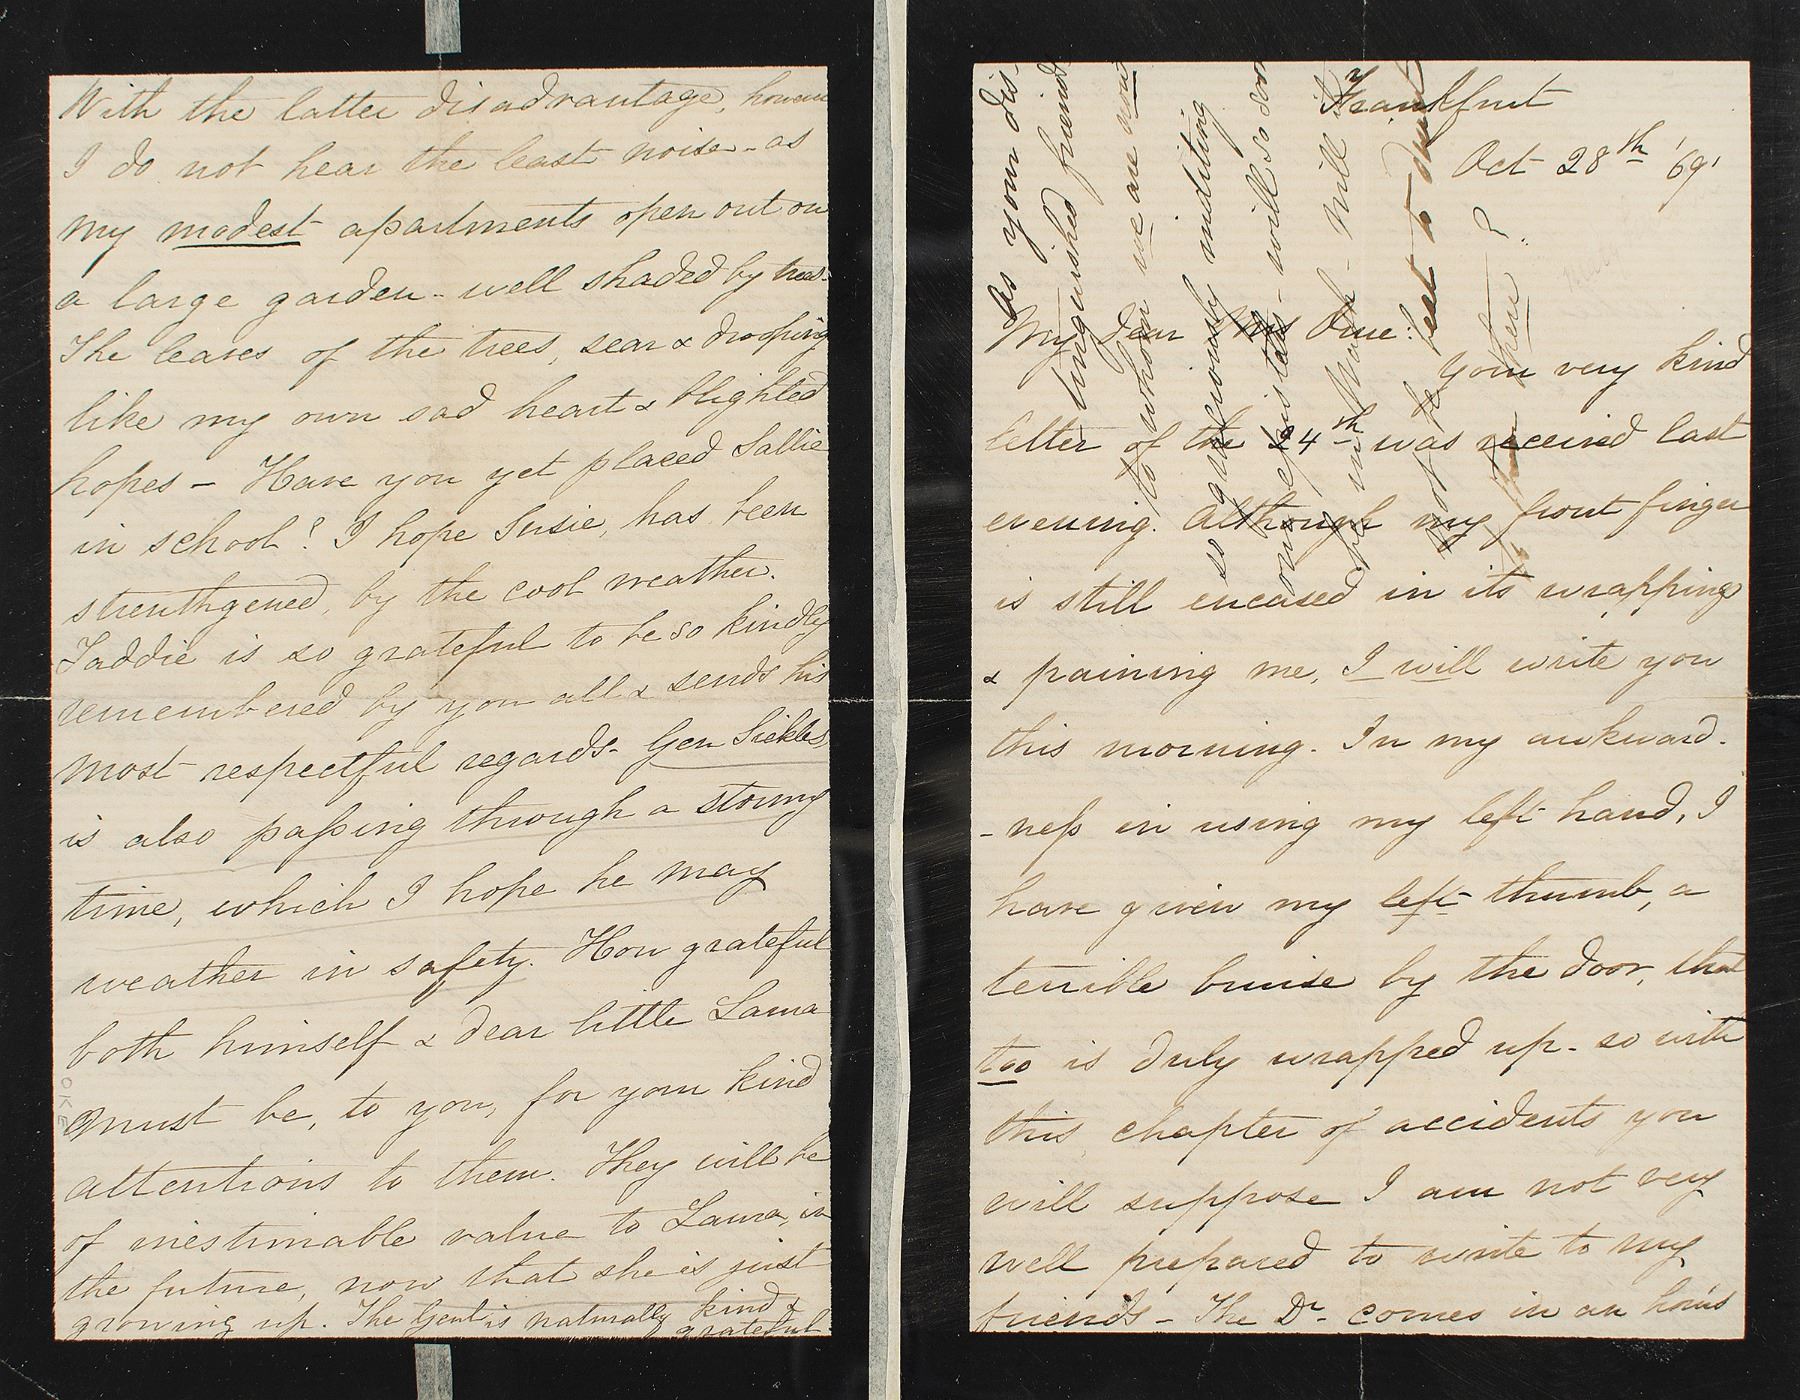 With the latter disadvantage, however
I do not hear the least noise - as
my modest apartments open out on
a large garden - well shaded by trees.
The leaves of the trees, sear & drooping
like my own sad heart & blighted
hopes - Have you yet placed Sallie
in school? I hope Susie, has been
strenthgened, by the cool weather.
Taddie is so grateful to be so kindly
remembered by you all & sends his
most respectful regards - Gen Sickles,
is also passing through a stormy
time, which I hope he may
weather in safety. How grateful
both himself & dear little Laura
must be, to you, for your kind
attentions to them. They will be
of inestimable value to Laura, in
the future, now that she is just
growing up. The Genl is naturally kind &
grateful
OKE
Frankfurt
Oct 28th '69'
My dear Mrs Orne:
Your very kind
letter of the 24th was received last
evening. Although my front finger
is still encased in its wrapping
& paining me, I will write you
this morning. In my awkward-
-ness in using my left hand, I
have given my left thumb, a
terrible bruise by the door, that
too is duly wrapped up - so with
this chapter of accidents you
will suppose I am not very
well prepared to write to my
friends - The Dr - comes in an hour's
As your dis-
tinguished friend
to whom we are
is graciously inditing
our epistles - will so soon
be in Wash - will
not be best to